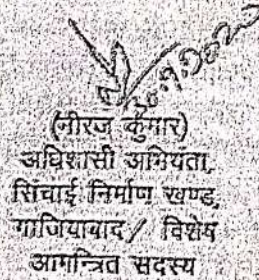 (नीरज कुमार)
अधिशासी अभियंता,
सिंचाई निर्माण खण्ड,
गाजियाबाद / विशेष
आमन्त्रित सदस्य